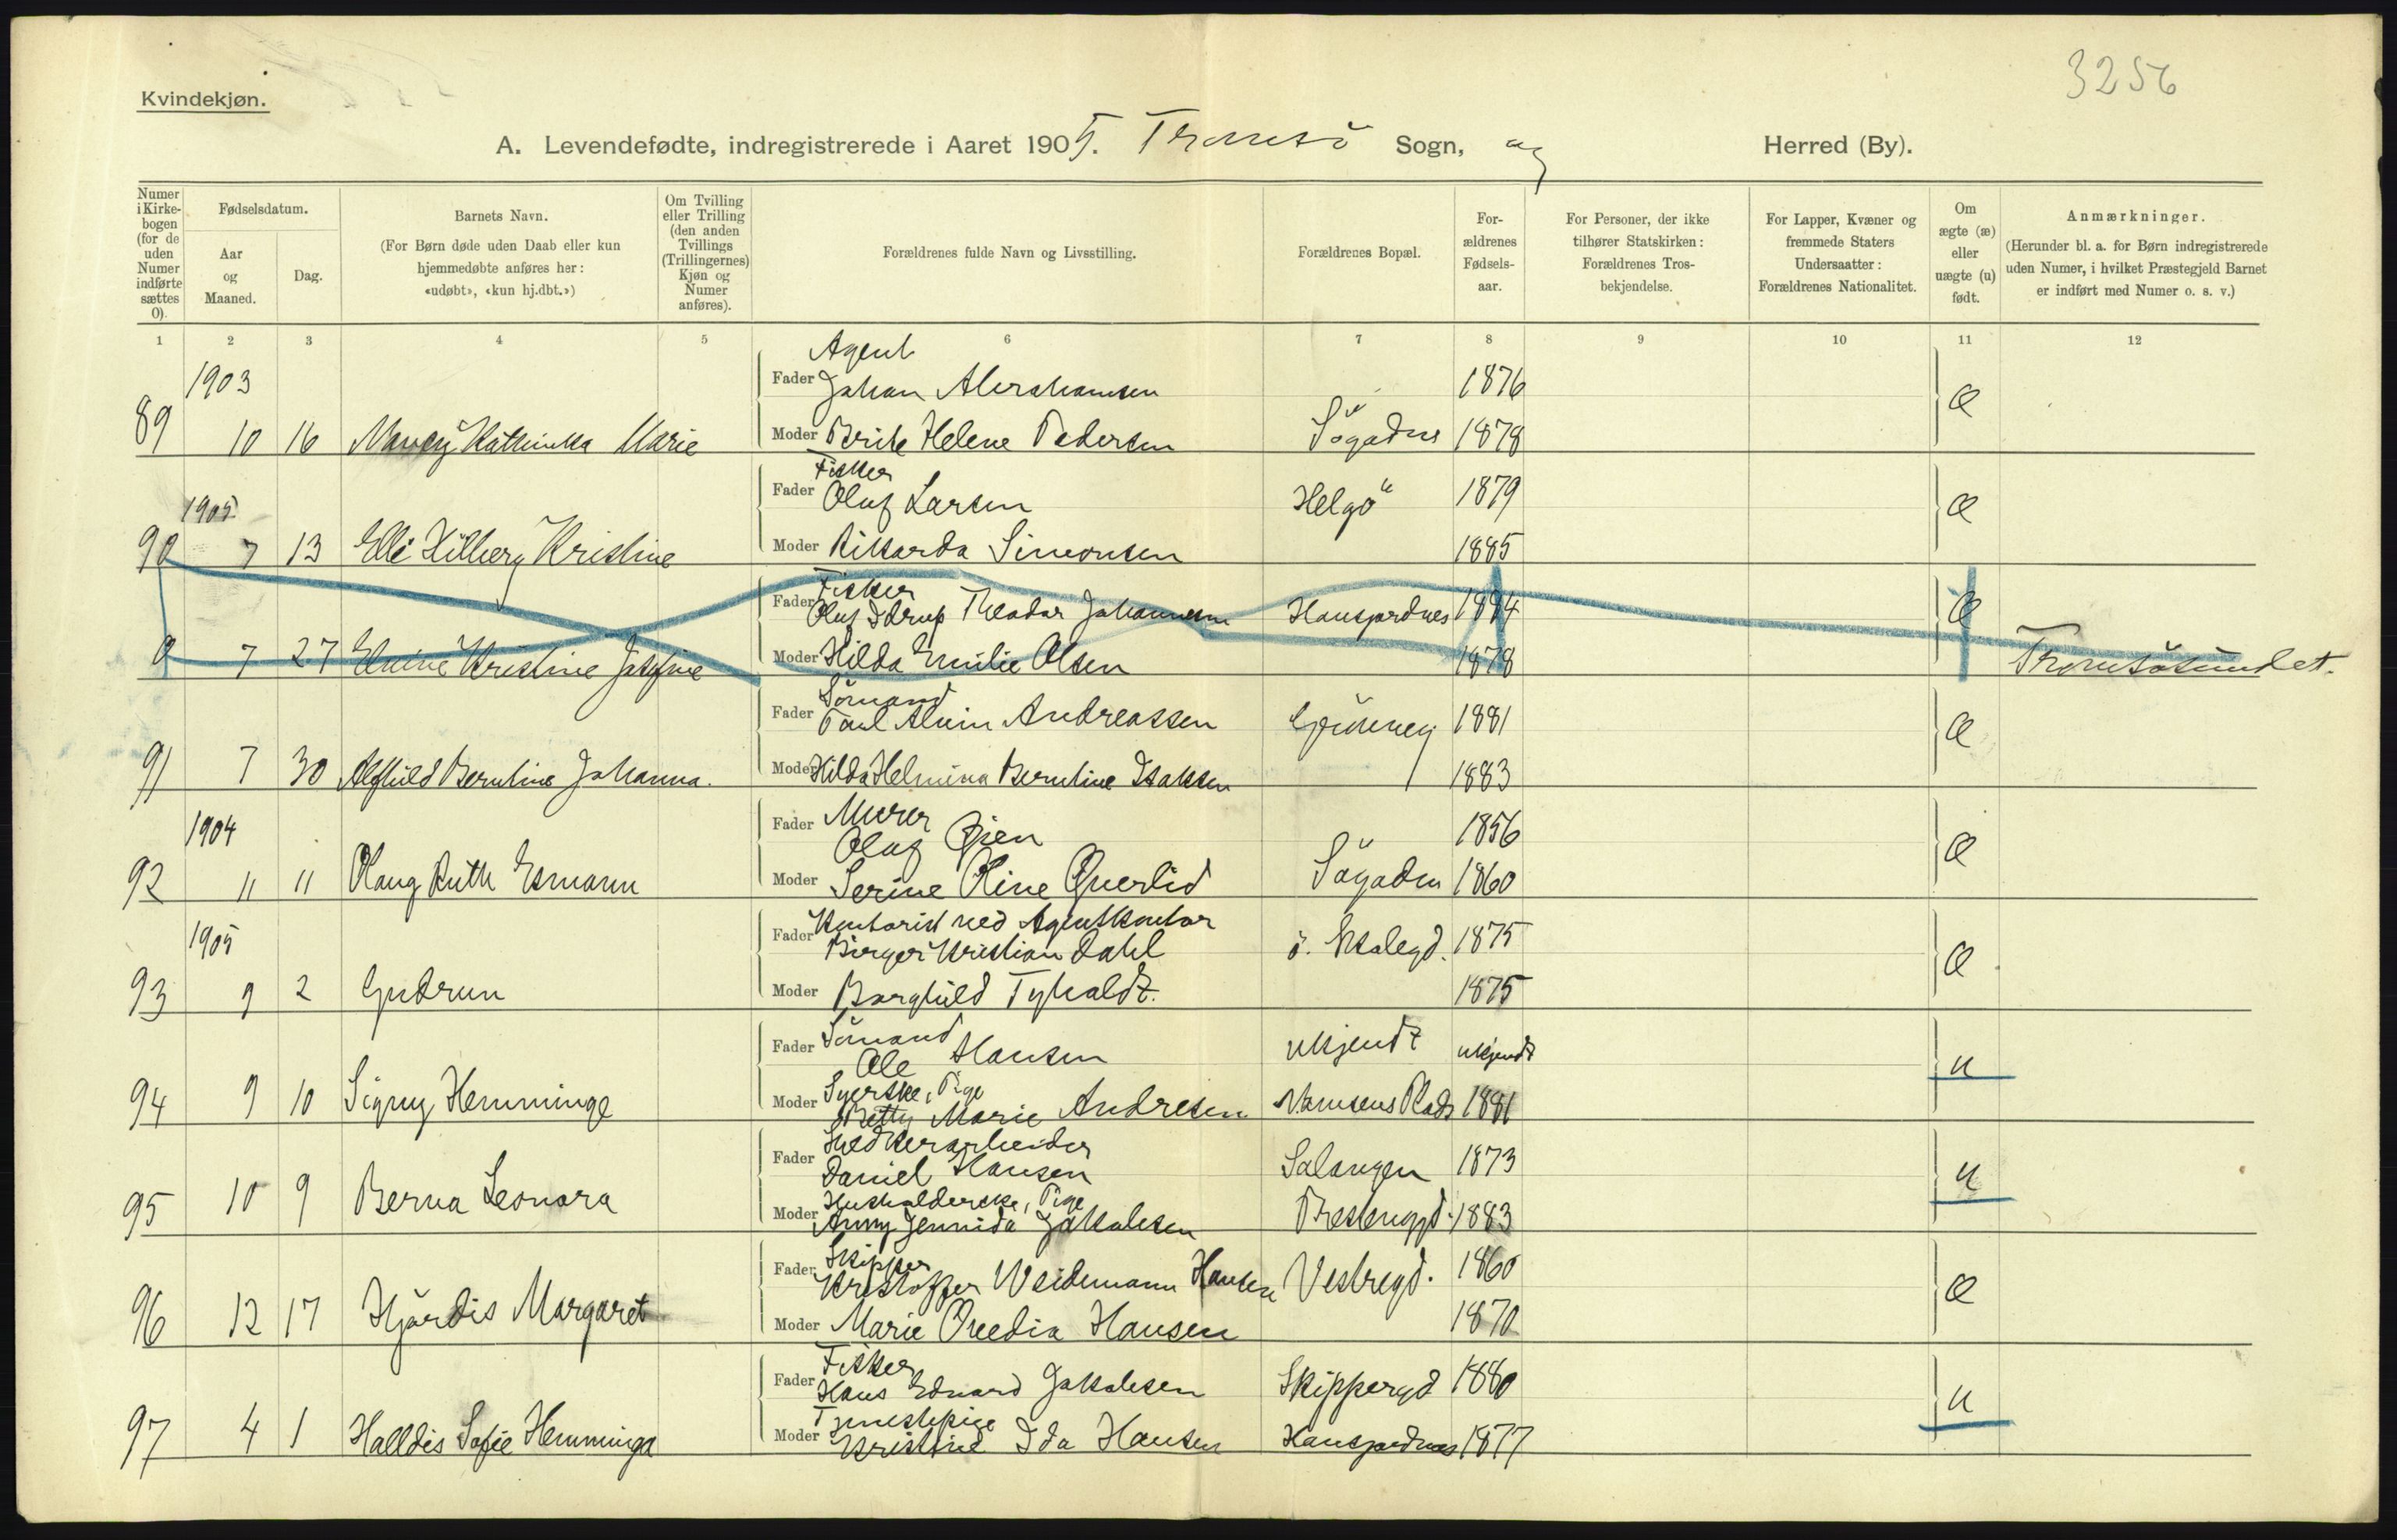 3256
Kvindekjøn.
A. Levendefødte, indregistrerede i Aaret 1905. Tromsö Sogn, og Herred (By).
Numer i Kirke-bogen (for de uden Numer indførte sættes 0).
Fødselsdatum.
Aar og Maaned.
Dag.
Barnets Navn.
(For Børn døde uden Daab eller kun hjemmedøbte anføres her: «udøbt», «kun hj.dbt.»)
Om Tvilling eller Trilling (den anden Tvillings (Trillingernes) Kjøn og Numer anføres).
Forældrenes fulde Navn og Livsstilling.
Forældrenes Bopæl.
For-ældrenes Fødsels-aar.
For Personer, der ikke tilhører Statskirken: Forældrenes Tros-bekjendelse.
For Lapper, Kvæner og fremmede Staters Undersaatter: Forældrenes Nationalitet.
Om ægte (æ) eller uægte (u) født.
Anmærkninger.
(Herunder bl. a. for Børn indregistrerede uden Numer, i hvilket Præstegjeld Barnet er indført med Numer o. s. v.)
1 2 3 4 5 6 7 8 9 10 11 12
Agent
1903 Fader Johan Abrahamsen 1876 Æ
89 10 16 Nancy Kathinka Marie Moder Brite Helene Pedersen Sögaden 1878
Fisker
1905 Fader Oluf Larsen Helgö 1879 Æ
90 7 13 Elli Hilberg Kristine Moder Rikarda Simonsen 1885
Fisker
Fader Oluf Idrup Theodor Johannesen Hansjordnes 1884 Æ
0 7 27 Kristine Josefine Moder Hilda Emilie Olsen 1878 Tromsösundet.
Sömand
Fader Paul Alvin Andreassen Grönneg 1881 Æ
91 7 30 Alfhild Berntine Johanna. Moder Hilda Helmina Berntine Isaksen 1883
Murer
1904 Fader Olaf Øien 1856 Æ
92 11 11 Olaug Ruth Esmarm Moder Serine Oline Querlid Sögaden 1860
Kontorist ved Agentkontor
1905 Fader Birger Kristian Dahl ö. Skolegd. 1875 Æ
93 9 2 Gudrun Moder Borghild Tyholdt. 1875
Sömand
Fader Ole Hansen ukjendt ukjendt u
Syerske, Pige
94 9 10 Signy Hemminge Moder Betty Marie Andresen Nansens Plads 1881
Fader Daniel Hansen Salangen 1873 u
Husholderske, Pige
95 10 9 Berna Leonora Moder Anny Jennida Jakobsen 1883
Skipper
Fader Kristoffer Weidemann Hansen Vestregd. 1860 Æ
96 12 17 Hjördis Margaret Moder Marie Ovedia Hansen 1870
Fisker
Fader Hans Edvard Jakobsen Skippergd 1880 u
Tjenestepige
97 4 1 Halldis Sofie Hemminga Moder Kristine Ida Hansen Hansjordnes 1877